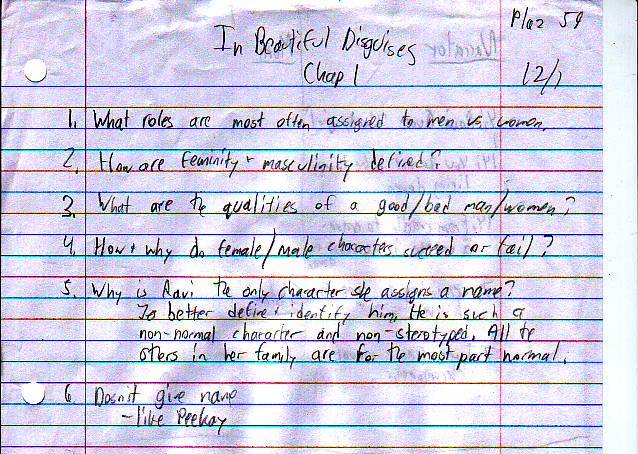 Plaz 59
In Beautiful Disguises
Chap 1
12/1
1. What roles are most often assigned to men vs women.
2. How are feminity + masculinity defined?
3. What are the qualities of a good/bad man/women?
4. How + why do female/male characters succeed or fail?
5. Why is Ravi the only character she assigns a name?
To better define + identify him, He is such a
non-normal character and non-sterotyped. All the
others in her family are for the most part normal.
6. Dosn't give name
- like Peekay